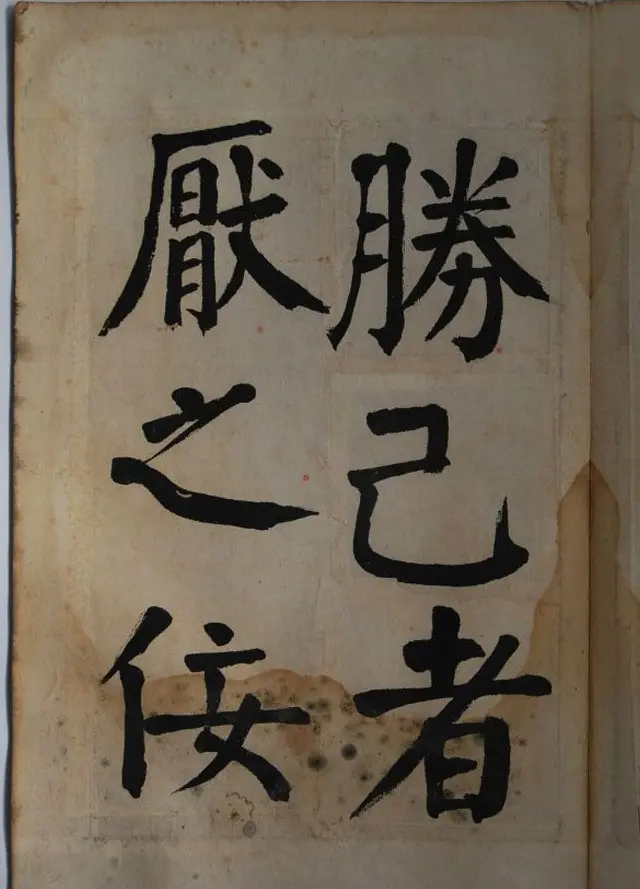 勝己者
厭之佞